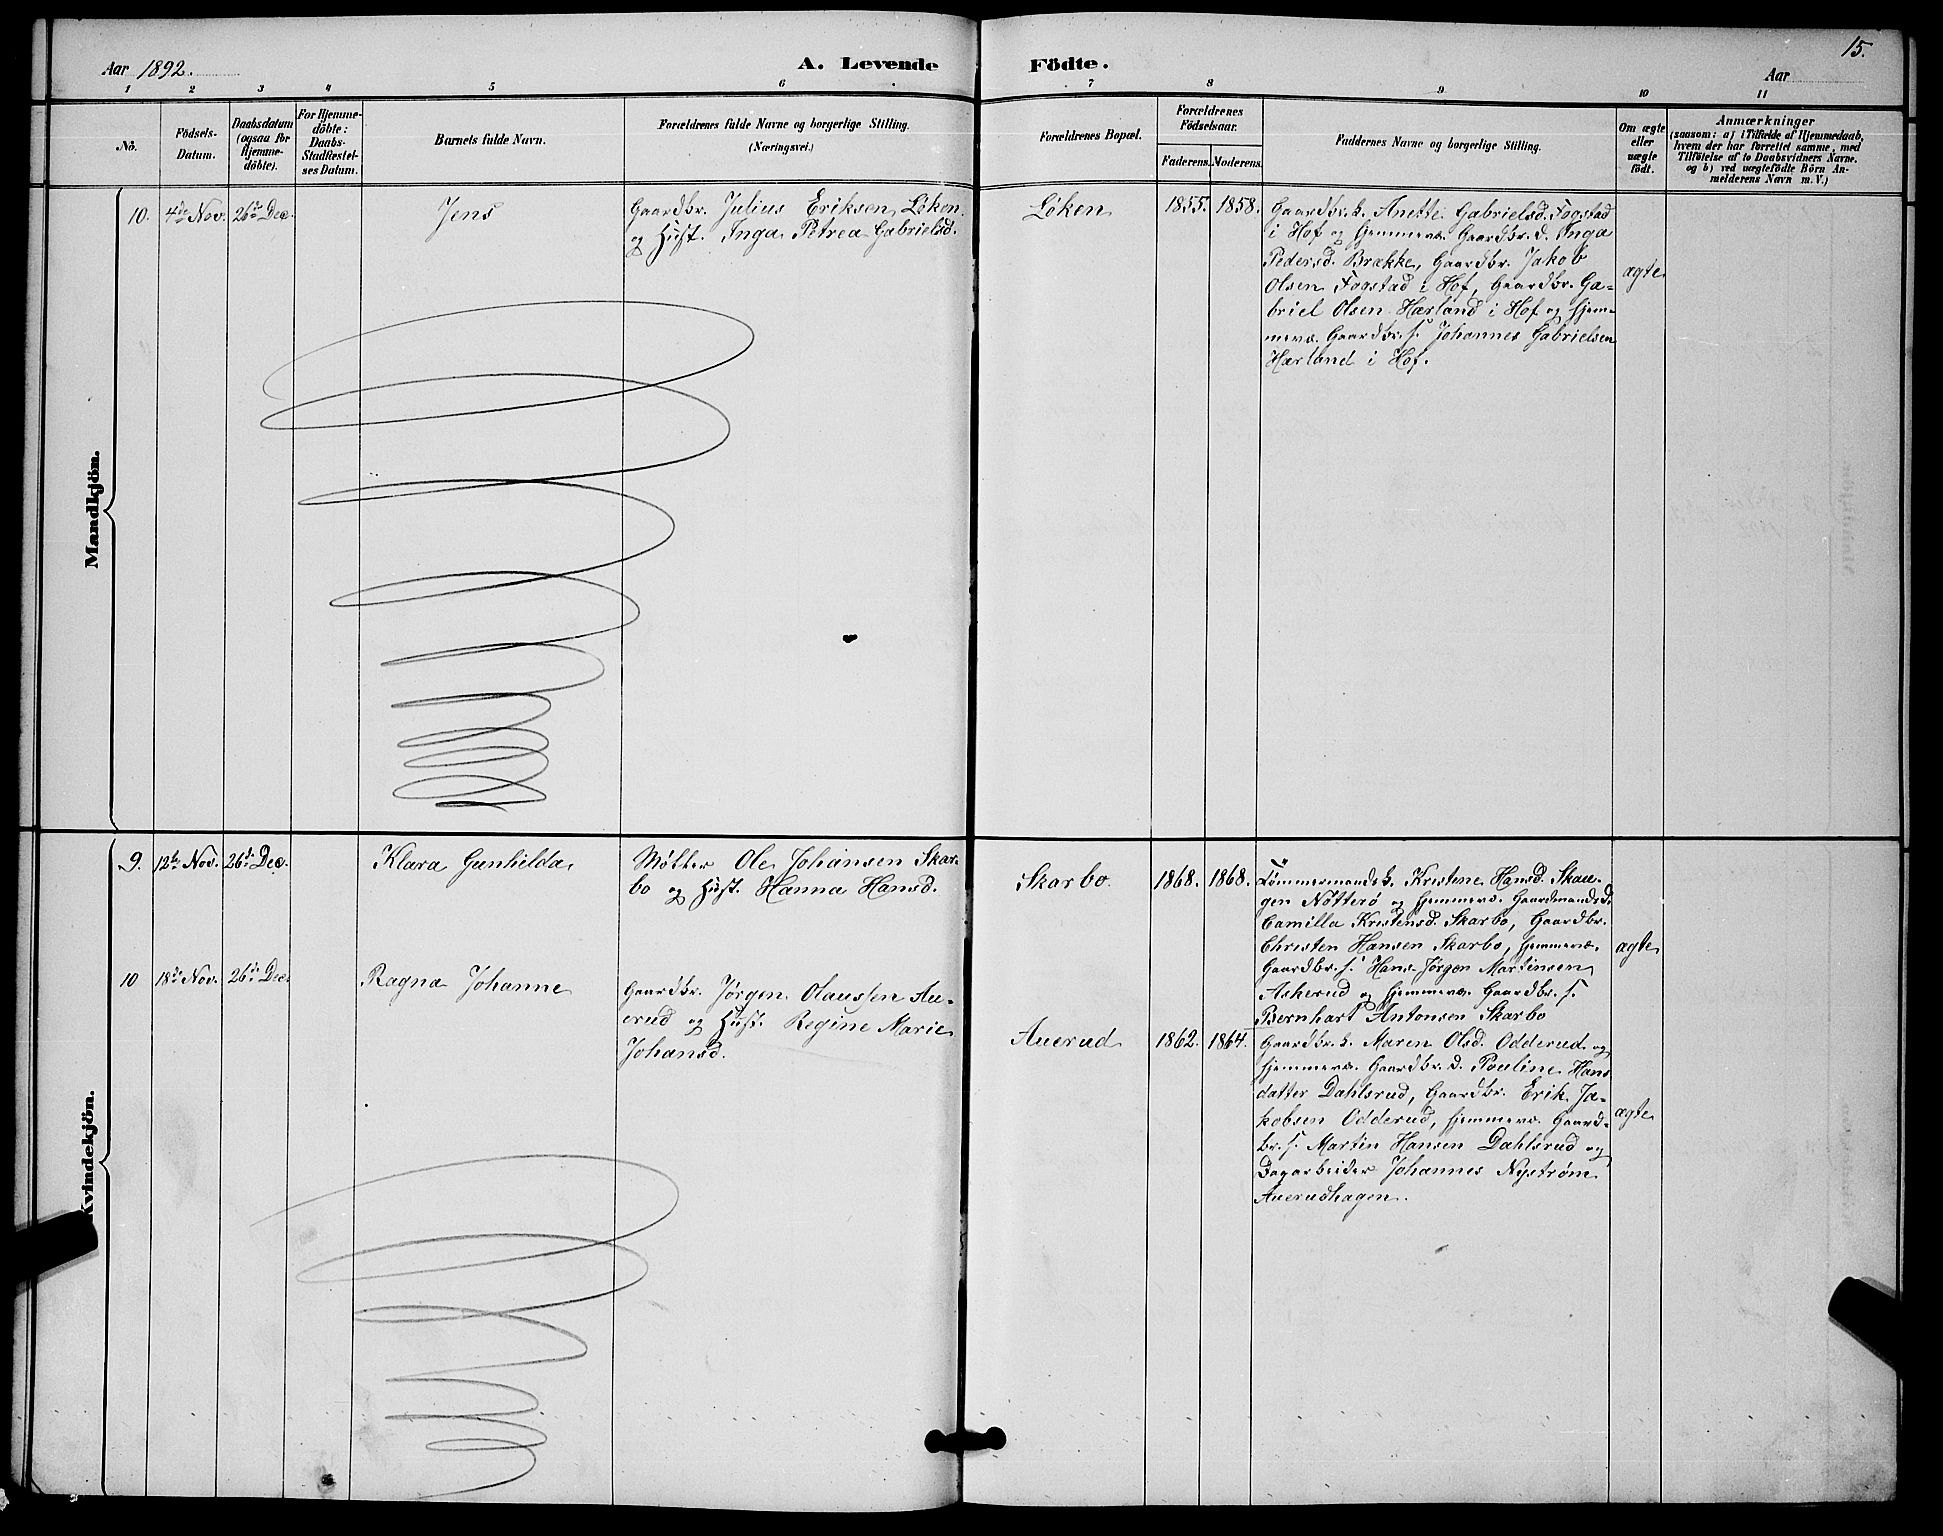 15.
Aar 1892.
A. Levende Födte.
Aar
1 2 3 4 5 6 7 8 9 10 11
No.
Födsels-
Datum.
Daabsdatum
(ogsaa for
Hjemme-
döbte).
For Hjemme-
döbte:
Daabs-
Stadfæstel-
ses Datum.
Barnets fulde Navn.
Forældrenes fulde Navne og borgerlige Stilling.
(Næringsvei.)
Forældrenes Bopæl.
Forældrenes
Födselsaar.
Faderens. Moderens.
Faddernes Navne og borgerlige Stilling.
Om ægte
eller
uægte
födt.
Anmærkninger
(saasom: a) i Tilfælde af Hjemmedaab,
hvem der har forrettet samme, med
Tilföielse af to Daabsvidners Navne.
og b) ved uægtefödte Börn An-
melderens Navn m. V.)
Mandkjön.
10. 4de Nov. 26de Dec.
Jens
Gaardbr. Julius Eriksen Løken
og Hust. Inga Petrea Gabrielsd.
Løken
1855. 1858.
Gaardbr.k. Anette Gabrielsd. Fogstad
i Hof og hjemmevr. Gaardbr.d. Inga
Pedersd. Brække, Gaardbr. Jakob
Olsen Fogstad i Hof, Gaardbr. Ga-
briel Olsen Hærland i Hof og hjem-
mevr. Gaardbr.s. Johannes Gabrielsen
Hærland i Hof.
ægte
Kvindekjön.
9. 12te Nov. 26de Dec.
Klara Gunhilda
Møller Ole Johansen Skar-
bo og Hust. Hanna Hansd.
Skarbo.
1868. 1868.
Tømmermandsk. Kristine Hansd. Skau-
gen Nötterö og hjemmevr. Gaardmandsd.
Camilla Kristensd. Skarbo, Gaardbr.
Christen Hansen Skarbo, hjemmevr.
Gaardbr.s. Hans Jørgen Martinsen
Askerud og hjemmevr. Gaardbr.s.
Bernhart Antonsen Skarbo
ægte
10 18de Nov. 26de Dec.
Ragna Johanne
Gaardbr. Jørgen Olaussen Au-
erud og Hust. Regine Marie
Johansd.
Auerud
1862. 1864.
Gaardbr.k. Maren Olsd. Odderud og
hjemmevr. Gaardbr.d. Pauline Hans
datter Dahlsrud, Gaardbr. Erik Ja-
kobsen Odderud, hjemmevr. Gaard-
br.s. Martin Hansen Dahlsrud og
Dagarbeider Johannes Nyström
Auerudhagen.
ægte